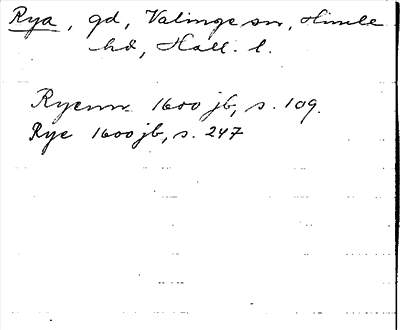 Rya, gd, Valinge sn, Himle
hd, Hall. l.
Ryenn 1600 jb, s. 109.
Rye 1600 jb, s. 247